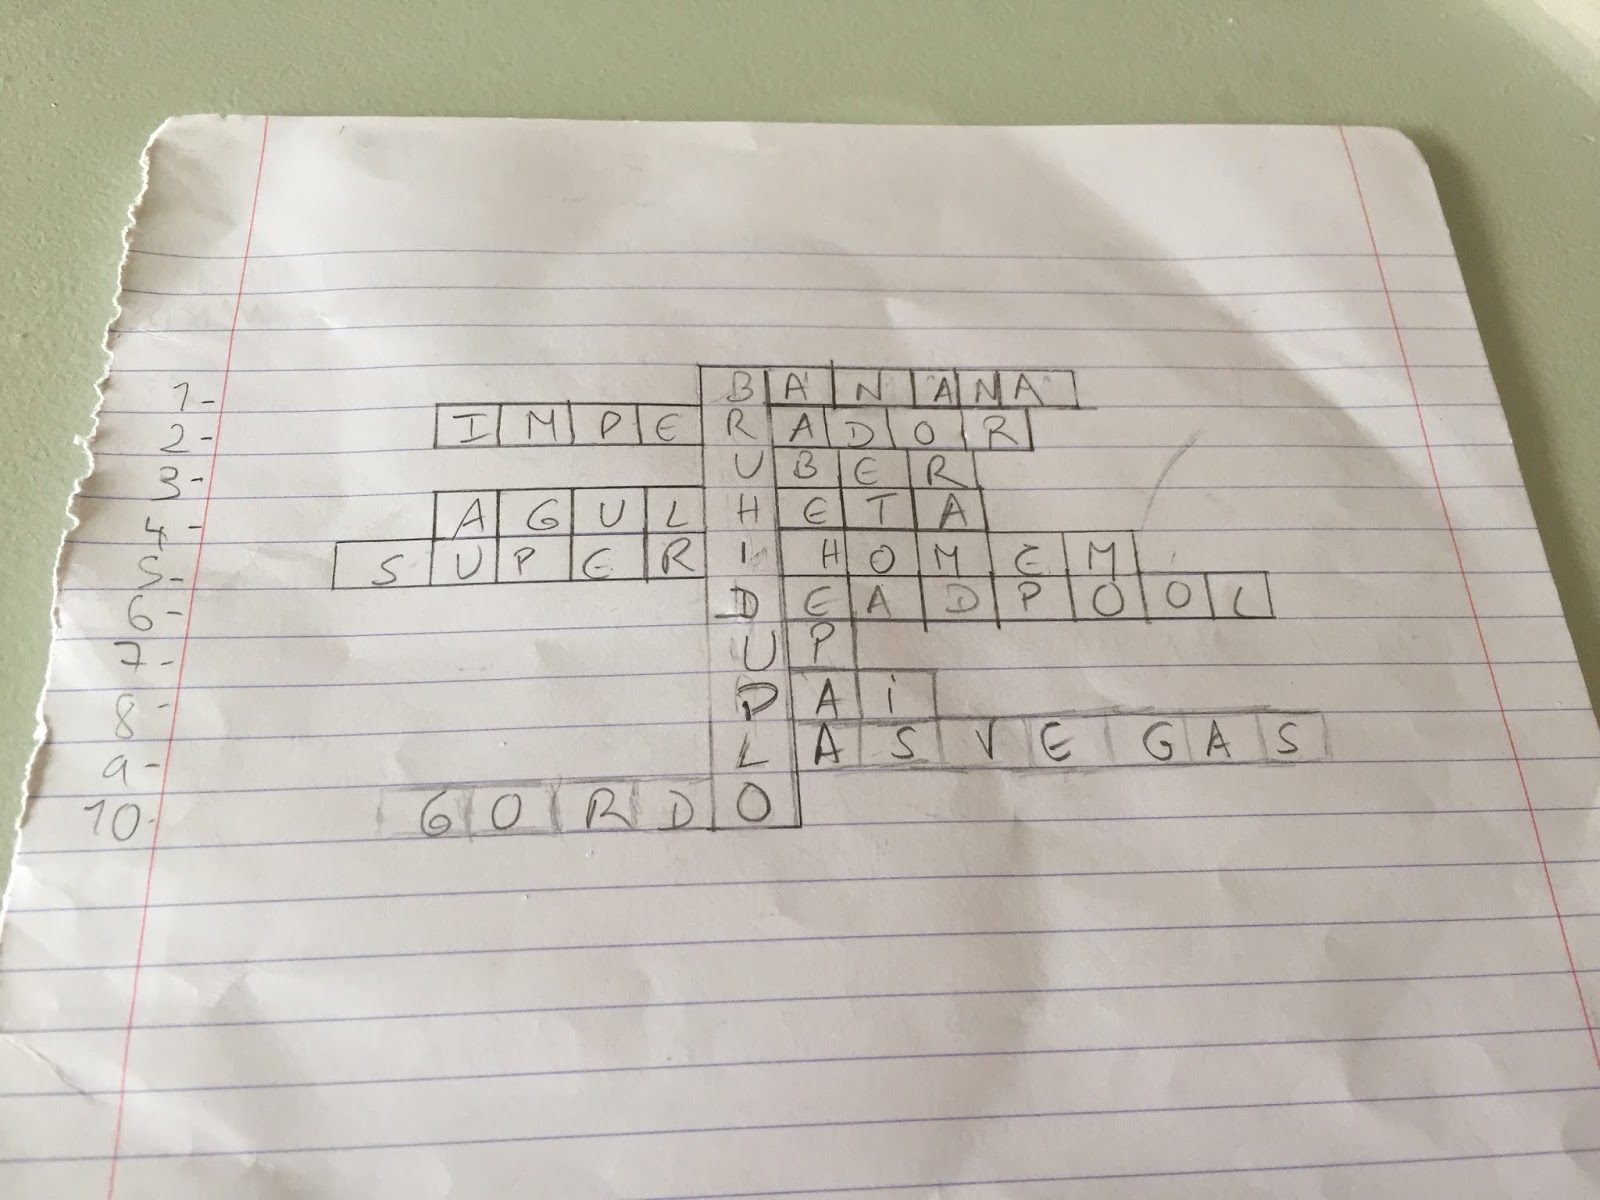 1- BANANA
2- IMPERADOR
3- UBER
4- AGULHETA
5- SUPERIHOMEM
6- DEADPOOL
7- UP
8- PAi
9- LASVEGAS
10- GORDO